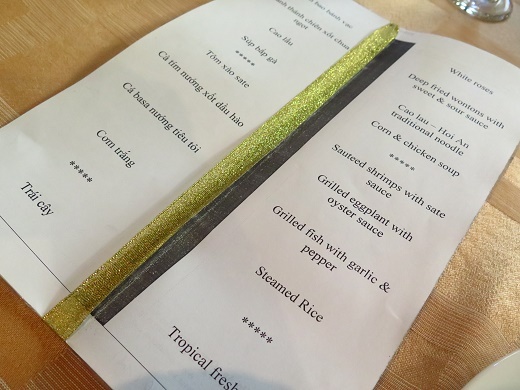 bánh bao bánh vạc
hoành thánh chiên xốt chua
ngọt
Cao lầu
Súp bắp gà
*****
Tôm xào sate
Cà tím nướng xốt dầu hào
Cá basa nướng tiêu tỏi
Cơm trắng
*****
Trái cây
White roses
Deep fried wontons with
sweet & sour sauce
Cao lau – Hoi An
traditional noodle
Corn & chicken soup
*****
Sauteed shrimps with sate
sauce
Grilled eggplant with
oyster sauce
Grilled fish with garlic &
pepper
Steamed Rice
*****
Tropical fresh